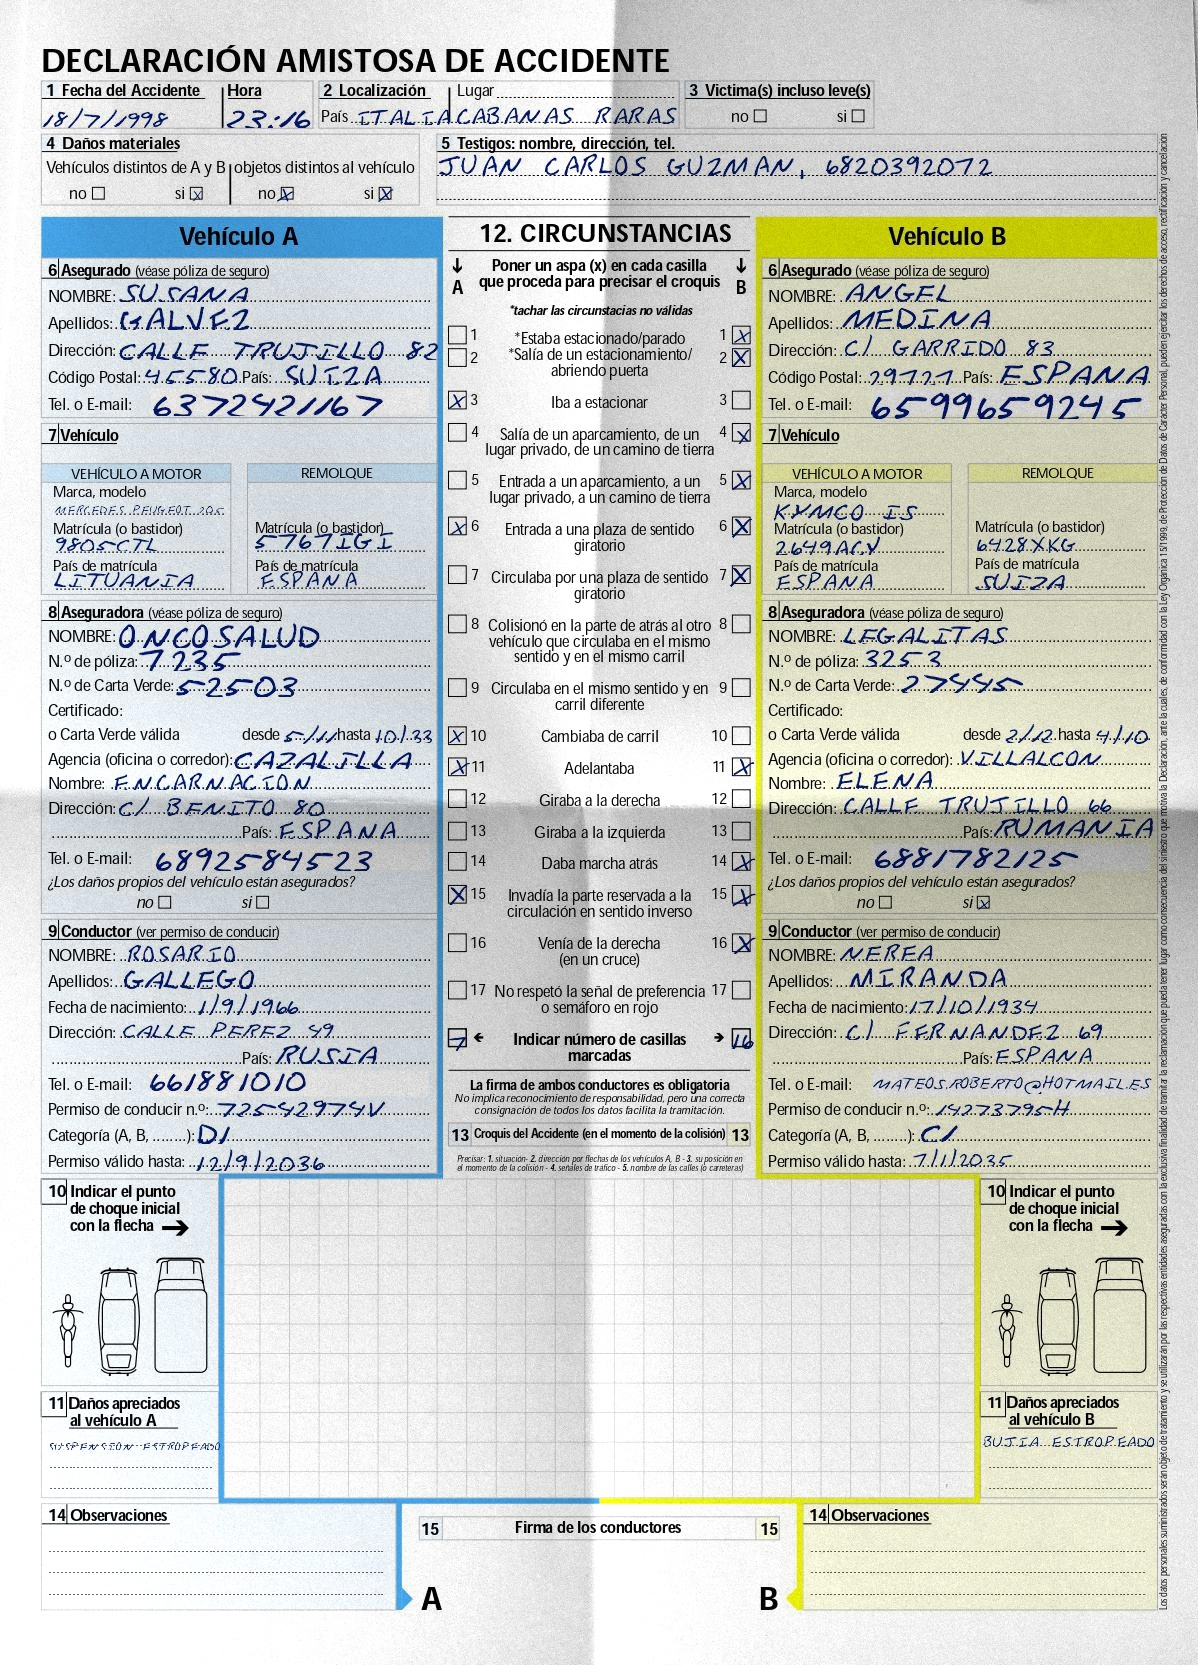 DECLARACIÓN AMISTOSA DE ACCIDENTE
1 Fecha del Accidente Hora 2 Localización Lugar 3 Victima(s) incluso leve(s)
18/7/1998 23:16 País ITALIA CABANAS RARAS no si
4 Daños materiales
Vehículos distintos de A y B objetos distintos al vehículo
no si X no X si X
5 Testigos: nombre, dirección, tel.
JUAN CARLOS GUZMAN, 6820392072
Vehículo A
6 Asegurado (véase póliza de seguro)
NOMBRE: SUSANA
Apellidos: GALVEZ
Dirección: CALLE TRUJILLO 82
Código Postal: 45580 País: SUIZA
Tel. o E-mail: 6372421167
7 Vehículo
VEHÍCULO A MOTOR REMOLQUE
Marca, modelo
MERCEDES PEUGEOT 205
Matrícula (o bastidor) Matrícula (o bastidor)
9805CTL 5767IGI
País de matrícula País de matrícula
LITUANIA ESPANA
8 Aseguradora (véase póliza de seguro)
NOMBRE: ONCOSALUD
N.º de póliza: 7235
N.º de Carta Verde: 52503
Certificado:
o Carta Verde válida desde 5/11 hasta 10/33
Agencia (oficina o corredor): CAZALILLA
Nombre: ENCARNACION
Dirección: C/ BENITO 80
País: ESPANA
Tel. o E-mail: 6892584523
¿Los daños propios del vehículo están asegurados?
no si
9 Conductor (ver permiso de conducir)
NOMBRE: ROSARIO
Apellidos: GALLEGO
Fecha de nacimiento: 1/9/1966
Dirección: CALLE PEREZ 49
País: RUSIA
Tel. o E-mail: 661881010
Permiso de conducir n.º: 72542974V
Categoría (A, B, ........): D1
Permiso válido hasta: 12/9/2036
12. CIRCUNSTANCIAS
A Poner un aspa (x) en cada casilla B
que proceda para precisar el croquis
*tachar las circunstacias no válidas
1 *Estaba estacionado/parado 1 X
2 *Salía de un estacionamiento/ 2 X
abriendo puerta
X 3 Iba a estacionar 3
4 Salía de un aparcamiento, de un 4 X
lugar privado, de un camino de tierra
5 Entrada a un aparcamiento, a un 5 X
lugar privado, a un camino de tierra
X 6 Entrada a una plaza de sentido 6 X
giratorio
7 Circulaba por una plaza de sentido 7 X
giratorio
8 Colisionó en la parte de atrás al otro 8
vehículo que circulaba en el mismo
sentido y en el mismo carril
9 Circulaba en el mismo sentido y en 9
carril diferente
X 10 Cambiaba de carril 10
X 11 Adelantaba 11 X
12 Giraba a la derecha 12
13 Giraba a la izquierda 13
14 Daba marcha atrás 14 X
X 15 Invadía la parte reservada a la 15 X
circulación en sentido inverso
16 Venía de la derecha 16 X
(en un cruce)
17 No respetó la señal de preferencia 17
o semáforo en rojo
7 Indicar número de casillas 16
marcadas
La firma de ambos conductores es obligatoria
No implica reconocimiento de responsabilidad, pero una correcta
consignación de todos los datos facilita la tramitación.
13 Croquis del Accidente (en el momento de la colisión) 13
Precisar: 1. situación- 2. dirección por flechas de los vehículos A, B - 3. su posición en
el momento de la colisión - 4. señales de tráfico - 5. nombre de las calles (o carreteras)
Vehículo B
6 Asegurado (véase póliza de seguro)
NOMBRE: ANGEL
Apellidos: MEDINA
Dirección: C/ GARRIDO 83
Código Postal: 29727 País: ESPANA
Tel. o E-mail: 6599659245
7 Vehículo
VEHÍCULO A MOTOR REMOLQUE
Marca, modelo
KYMCO IS
Matrícula (o bastidor) Matrícula (o bastidor)
2649ACV 6428XKG
País de matrícula País de matrícula
ESPANA SUIZA
8 Aseguradora (véase póliza de seguro)
NOMBRE: LEGALITAS
N.º de póliza: 3253
N.º de Carta Verde: 27445
Certificado:
o Carta Verde válida desde 2/12 hasta 4/10
Agencia (oficina o corredor): VILLALCON
Nombre: ELENA
Dirección: CALLE TRUJILLO 66
País: RUMANIA
Tel. o E-mail: 6881782125
¿Los daños propios del vehículo están asegurados?
no si X
9 Conductor (ver permiso de conducir)
NOMBRE: NEREA
Apellidos: MIRANDA
Fecha de nacimiento: 17/10/1934
Dirección: C/ FERNANDEZ 69
País: ESPANA
Tel. o E-mail: MATEOS.ROBERTO@HOTMAIL.ES
Permiso de conducir n.º: 14273795H
Categoría (A, B, ........): C1
Permiso válido hasta: 7/1/2035
10 Indicar el punto
de choque inicial
con la flecha
11 Daños apreciados
al vehículo A
SUSPENSION ESTROPEADO
14 Observaciones
10 Indicar el punto
de choque inicial
con la flecha
11 Daños apreciados
al vehículo B
BUJIA ESTROPEADO
14 Observaciones
15 Firma de los conductores 15
A B